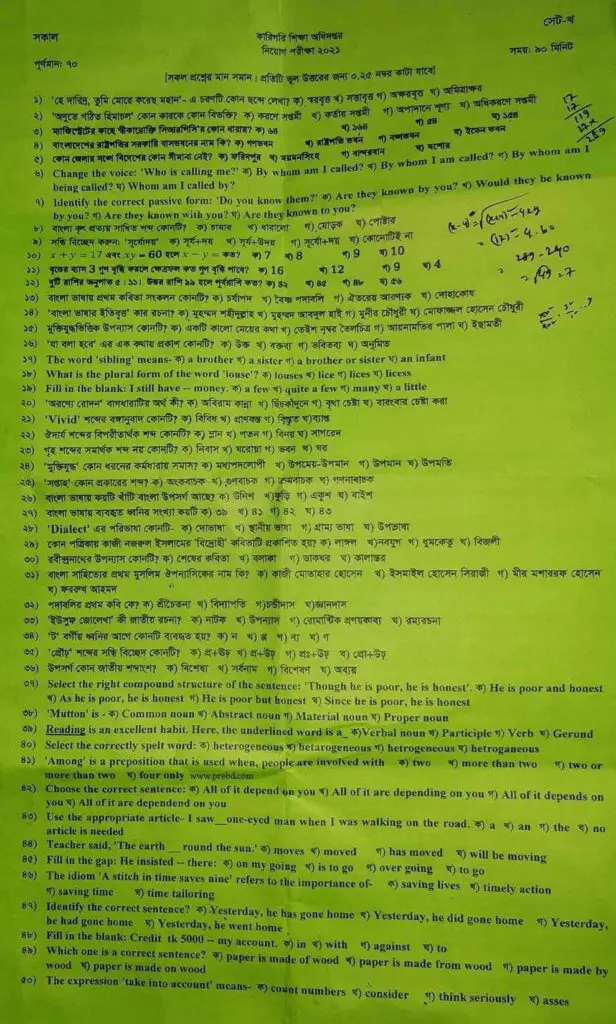 সেট-খ
সকাল
কারিগরি শিক্ষা অধিদপ্তর
নিয়োগ পরীক্ষা ২০২১
পূর্ণমান: ৭০
সময়: ৯০ মিনিট
[সকল প্রশ্নের মান সমান। প্রতিটি ভুল উত্তরের জন্য ০.২৫ নম্বর কাটা যাবে]
১) 'হে দারিদ্র, তুমি মোরে করেছ মহান'- এ চরণটি কোন ছন্দে লেখা? ক) স্বরবৃত্ত খ) মাত্রাবৃত্ত গ) অক্ষরবৃত্ত ঘ) অমিত্রাক্ষর
২) 'অণুতে গঠিত হিমাচল' কোন কারকে কোন বিভক্তি? ক) করণে সপ্তমী খ) কর্তায় সপ্তমী গ) অপাদানে শূণ্য ঘ) অধিকরণে সপ্তমী
৩) ম্যাজিস্ট্রেটের কাছে স্বীকারোক্তি সিআরপিসি'র কোন ধারায়? ক) ৬৪ খ) ১৬৪ গ) ৫৪ ঘ) ১৫৪
৪) বাংলাদেশের রাষ্ট্রপতির সরকারি বাসভবনের নাম কি? ক) গণভবন খ) রাষ্ট্রপতি ভবন গ) বঙ্গভবন ঘ) ইডেন ভবন
৫) কোন জেলার সঙ্গে বিদেশের কোন সীমানা নেই? ক) ফরিদপুর খ) ময়মনসিংহ গ) বান্দরবান ঘ) যশোর
৬) Change the voice: 'Who is calling me?' ক) By whom am I called? খ) By whom I am called? গ) By whom am I
being called? ঘ) Whom am I called by?
৭) Identify the correct passive form: 'Do you know them?' ক) Are they known by you? খ) Would they be known
by you? গ) Are they known with you? ঘ) Are they known to you?
৮) বাংলা কৃৎ প্রত্যয় সাধিত শব্দ কোনটি? ক) চামার খ) ধারালো গ) মোড়ক ঘ) পোষ্টার
৯) সন্ধি বিচ্ছেদ করুন: 'সূর্যোদয়' ক) সূর্য+দয় খ) সূর্য+উদয় গ) সূর্যো+দয় ঘ) কোনোটিই না
১০) x + y = 17 এবং xy = 60 হলে x − y = কত? ক) 7 খ) 8 গ) 9 ঘ) 10
১১) বৃত্তের ব্যাস 3 গুণ বৃদ্ধি করলে ক্ষেত্রফল কত গুণ বৃদ্ধি পাবে? ক) 16 খ) 12 গ) 9 ঘ) 4
১২) দুটি রাশির অনুপাত ৫ : ১১। উত্তর রাশি ৯৯ হলে পূর্বরাশি কত? ক) ৪২ খ) ৪৫ গ) ৪৮ ঘ) ৫৬
১৩) বাংলা ভাষায় প্রথম কবিতা সংকলন কোনটি? ক) চর্যাপদ খ) বৈষ্ণ পদাবলি গ) ঐতরেয় আরণ্যক ঘ) দোহাকোষ
১৪) 'বাংলা ভাষার ইতিবৃত্ত' কার রচনা? ক) মুহম্মদ শহীদুল্লাহ খ) মুহম্মদ আবদুল হাই গ) মুনীর চৌধুরী ঘ) মোফাজ্জল হোসেন চৌধুরী
১৫) মুক্তিযুদ্ধভিত্তিক উপন্যাস কোনটি? ক) একটি কালো মেয়ের কথা খ) তেইশ নম্বর তৈলচিত্র গ) আয়নামতির পালা ঘ) ইছামতী
১৬) 'যা বলা হবে' এর এক কথায় প্রকাশ কোনটি? ক) উক্ত খ) বক্তব্য গ) ভবিতব্য ঘ) অনূদিত
১৭) The word 'sibling' means- ক) a brother খ) a sister গ) a brother or sister ঘ) an infant
১৮) What is the plural form of the word 'louse'? ক) louses খ) lice গ) lices ঘ) licess
১৯) Fill in the blank: I still have -- money. ক) a few খ) quite a few গ) many ঘ) a little
২০) 'অরণ্যে রোদন' বাগধারাটির অর্থ কী? ক) অবিরাম কান্না খ) ছিঁচকাঁদুনে গ) বৃথা চেষ্টা ঘ) বারংবার চেষ্টা করা
২১) 'Vivid' শব্দের বঙ্গানুবাদ কোনটি? ক) বিবিধ খ) প্রাণবন্ত গ) বিস্তৃত ঘ)ব্যাপ্ত
২২) ঔদার্য শব্দের বিপরীতার্থক শব্দ কোনটি? ক) ম্লান খ) পতন গ) বিনয় ঘ) সাগরেদ
২৩) গৃহ শব্দের সমার্থক শব্দ নয় কোনটি? ক) নিবাস খ) ঘরোয়া গ) ভবন ঘ) ঘর
২৪) 'মুক্তিযুদ্ধ' কোন ধরনের কর্মধারায় সমাস? ক) মধ্যপদলোপী খ) উপমেয়-উপমান গ) উপমান ঘ) উপমতি
২৫) 'সপ্তাহ' কোন প্রকারের শব্দ? ক) অংকবাচক খ) গুণবাচক গ) ক্রমবাচক ঘ) গণনাবাচক
২৬) বাংলা ভাষায় কয়টি খাঁটি বাংলা উপসর্গ আছে? ক) উনিশ খ)কুড়ি গ) একুশ ঘ) বাইশ
২৭) বাংলা ভাষায় ব্যবহৃত ধ্বনির সংখ্যা কয়টি ক) ৩৯ খ) ৪১ গ) ৪২ ঘ) ৪৩
২৮) 'Dialect' এর পরিভাষা কোনটি- ক) দোভাষা খ) স্থানীয় ভাষা গ) গ্রাম্য ভাষা ঘ) উপভাষা
২৯) কোন পত্রিকায় কাজী নজরুল ইসলামের 'বিদ্রোহী' কবিতাটি প্রকাশিত হয়? ক) লাঙ্গল খ)নবযুগ গ) ধুমকেতু ঘ) বিজলী
৩০) রবীন্দ্রনাথের উপন্যাস কোনটি? ক) শেষের কবিতা খ) বলাকা গ) ডাকঘর ঘ) কালান্তর
৩১) বাংলা সাহিত্যের প্রথম মুসলিম ঔপন্যাসিকের নাম কি? ক) কাজী মোতাহার হোসেন খ) ইসমাইল হোসেন সিরাজী গ) মীর মশাররফ হোসেন
ঘ) ফররুখ আহমদ
৩২) পদাবলির প্রথম কবি কে? ক) শ্রীচৈতন্য খ) বিদ্যাপতি গ)চন্ডীদাস ঘ)জ্ঞানদাস
৩৩) 'ইউসুফ জোলেখা' কী জাতীয় রচনা? ক) নাটক খ) উপন্যাস গ) রোমান্টিক প্রণয়কাব্য ঘ) রম্যরচনা
৩৪) 'ট' বর্গীয় ধ্বনির আগে কোনটি ব্যবহৃত হয়? ক) ন খ) ঙ্গ গ) ণ্য ঘ) ণ
৩৫) 'প্রৌঢ়' শব্দের সন্ধি বিচ্ছেদ কোনটি? ক) প্র+ঊঢ় খ) প্র+উঢ় গ) প্রঃ+উঢ় ঘ) প্রো+উঢ়
৩৬) উপসর্গ কোন জাতীয় শব্দাংশ? ক) বিশেষ্য খ) সর্বনাম গ) বিশেষণ ঘ) অব্যয়
৩৭) Select the right compound structure of the sentence: 'Though he is poor, he is honest'. ক) He is poor and honest
খ) As he is poor, he is honest গ) He is poor but honest ঘ) Since he is poor, he is honest
৩৮) 'Mutton' is - ক) Common noun খ) Abstract noun গ) Material noun ঘ) Proper noun
৩৯) Reading is an excellent habit. Here, the underlined word is a_ ক)Verbal noun খ) Participle গ) Verb ঘ) Gerund
৪০) Select the correctly spelt word: ক) heterogeneous খ) hetarogeneous গ) hetrogeneous ঘ) hetroganeous
৪১) 'Among' is a preposition that is used when, people are involved with ক) two খ) more than two গ) two or
more than two ঘ) four only www.prebd.com
৪২) Choose the correct sentence: ক) All of it depend on you খ) All of it are depending on you গ) All of it depends on
you ঘ) All of it are dependend on you
৪৩) Use the appropriate article- I saw__one-eyed man when I was walking on the road. ক) a খ) an গ) the ঘ) no
article is needed
৪৪) Teacher said, 'The earth __ round the sun.' ক) moves খ) moved গ) has moved ঘ) will be moving
৪৫) Fill in the gap: He insisted -- there: ক) on my going খ) is to go গ) over going ঘ) to go
৪৬) The idiom 'A stitch in time saves nine' refers to the importance of- ক) saving lives খ) timely action
গ) saving time ঘ) time tailoring
৪৭) Identify the correct sentence? ক) Yesterday, he has gone home খ) Yesterday, he did gone home গ) Yesterday,
he had gone home ঘ) Yesterday, he went home
৪৮) Fill in the blank: Credit tk 5000 -- my account. ক) in খ) with গ) against ঘ) to
৪৯) Which one is a correct sentence? ক) paper is made of wood খ) paper is made from wood গ) paper is made by
wood ঘ) paper is made on wood
৫০) The expression 'take into account' means- ক) count numbers খ) consider গ) think seriously ঘ) asses